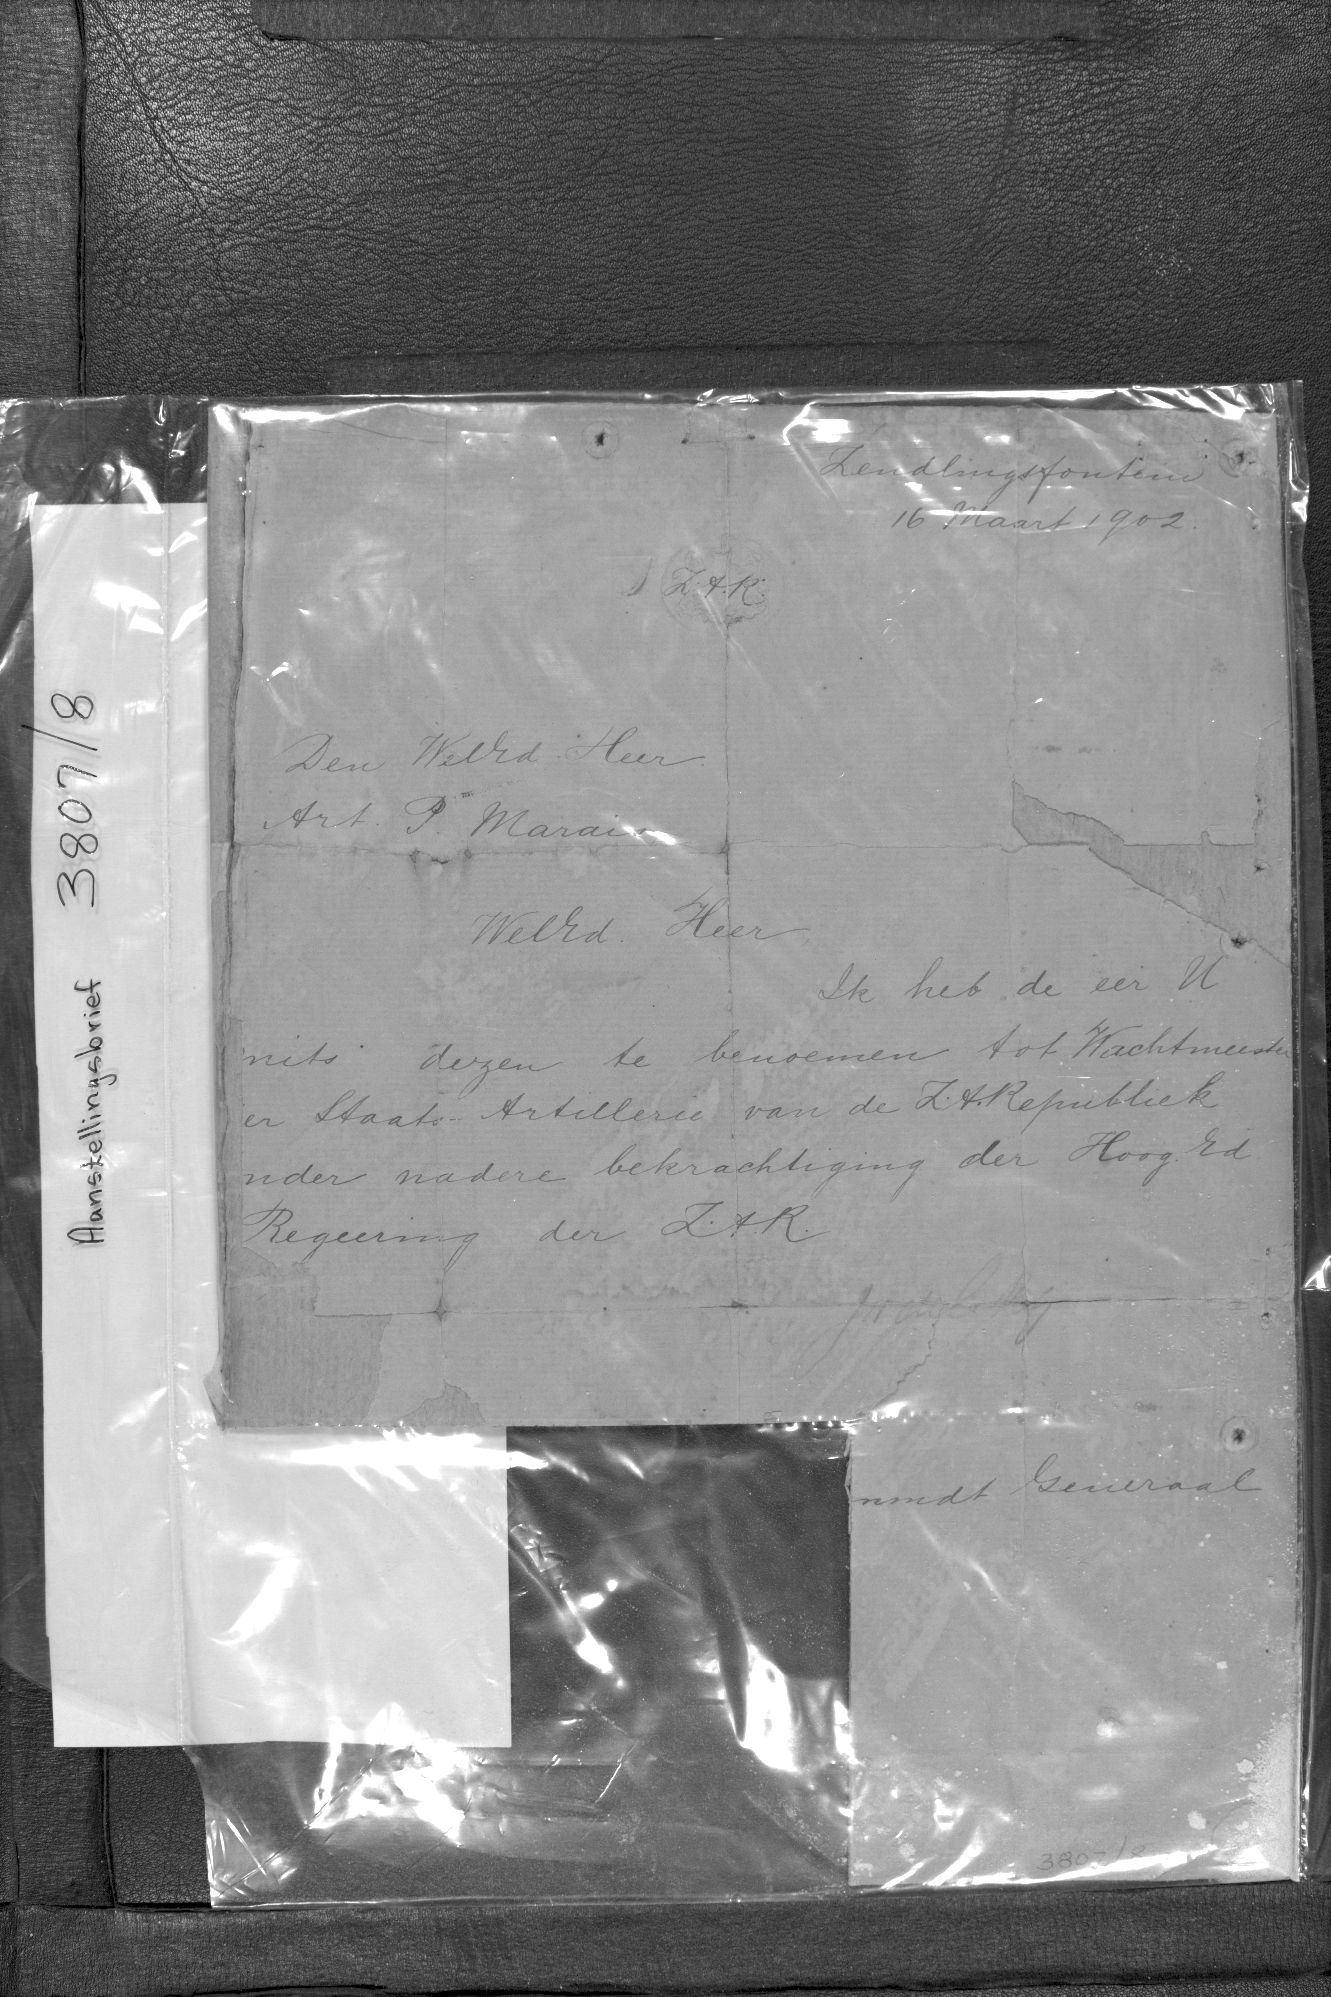 Zendlingsfontein
16 Maart 1902.
Z.A.R.
Den WelEd. Heer
Art. P. Marais
WelEd. Heer
Ik heb de eer U
mits dezen te benoemen tot Wachtmeester
er Staats-Artillerie van de Z.A.Republiek
nder nadere bekrachtiging der Hoog.Ed
Regeering der Z.A.R.
mmdt Generaal
3807/8
Aanstellingsbrief 3807/8